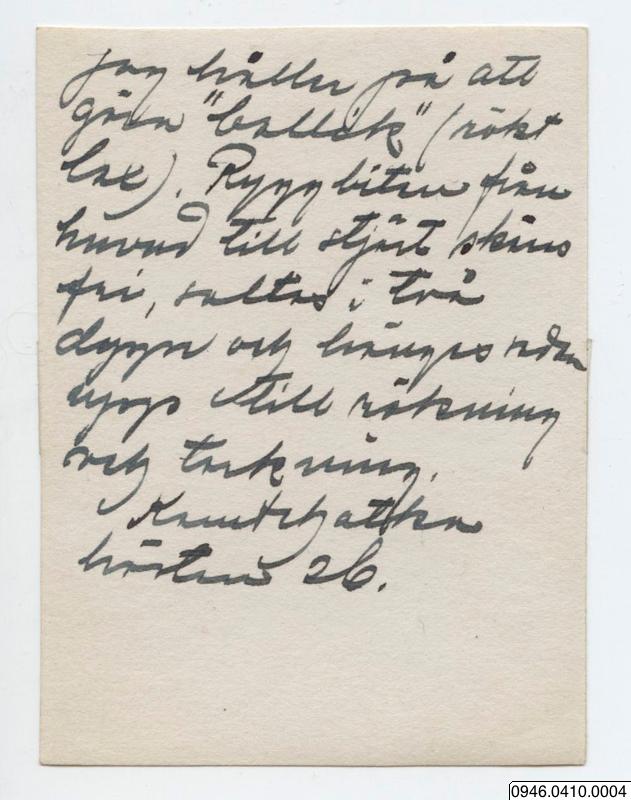 Jag håller på att
göra "ballik" (rökt
lax). Ryggbiten från
huvud till stjärt skäres
fri, saltas i två
dygn och hänges sedan
upp till rökning
och torkning.
Kamtchatka
hösten 26.
0946.0410.0004